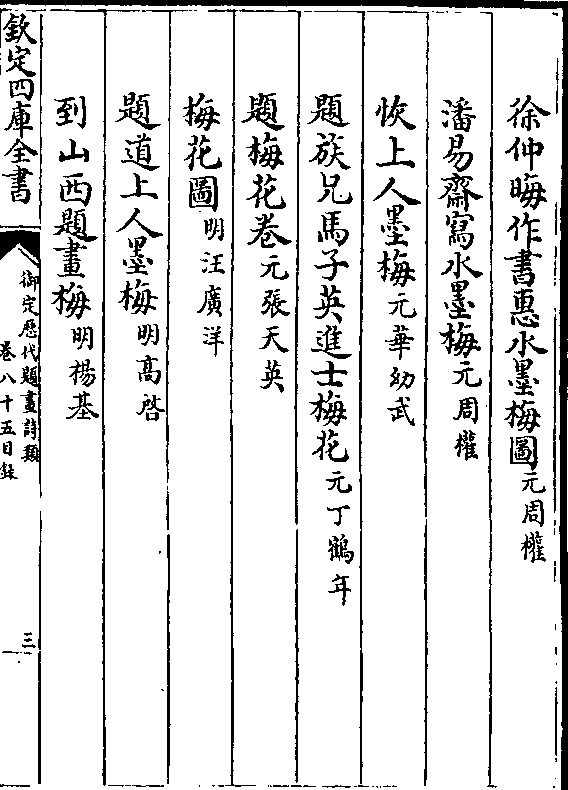 徐仲晦作書惠水墨梅圖元周權
潘易齋寫水墨梅元周權
恢上人墨梅元華幼武
題族兄馬子英進士梅花元丁鶴年
題梅花卷元張天英
梅花圖明汪廣洋
題道上人墨梅明高啓
到山西題畫梅明楊基
欽定四庫全書
御定歷代題畫詩類
卷八十五目錄
三